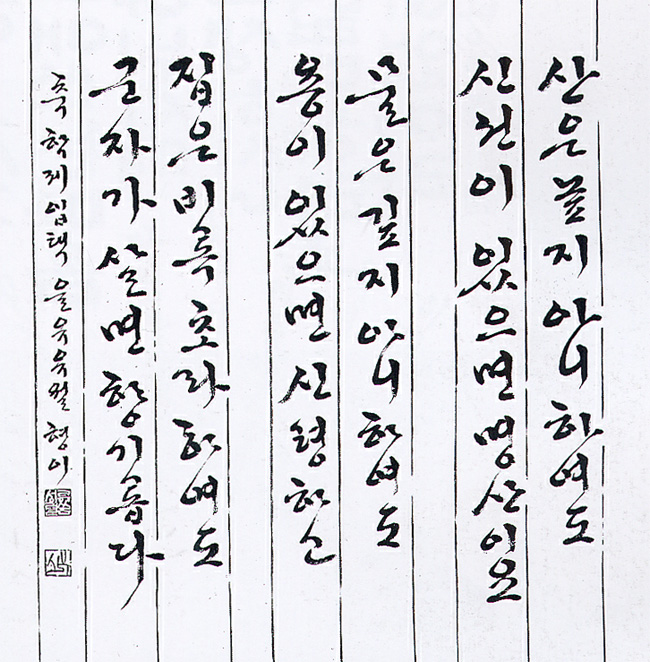 산은 높지 아니 하여도
신선이 있으면 명산이요
물은 깊지 아니 하여도
용이 있으면 신령
집은 비록 초라 하여도
군자가 살면 향기롭다
축 학제입택 을유유월 형이